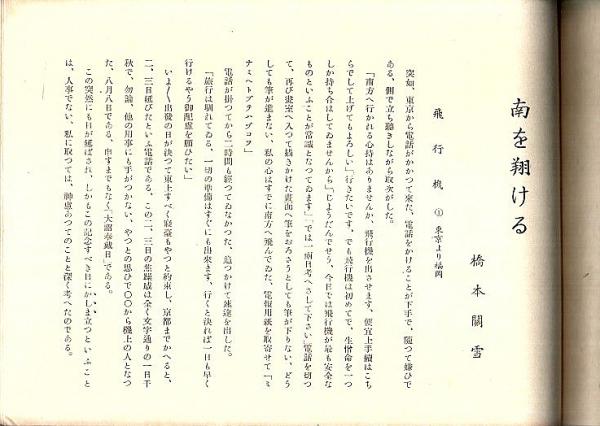 南を翔ける
橋本關雪
飛行機 ① 東京より福岡
突如、東京から電話がかかつて來た、電話をかけることが下手で、隨つて嫌ひで
ある、側で立ち聽きしながら取次がした。
「南方へ行かれる心持はありませんか、飛行機を出させます、便宜上手續はこち
らでして上げてもよろしい」「行きたいです、でも飛行機は初めてで、生憎命を一つ
しか持ち合はしてゐませんから」「じようだんでせう、今日では飛行機が最も安全な
ものといふことが常識となつてゐます」「では一兩日考へさして下さい」電話を切つ
て、再び畫室へ入つて描きかけた畫面へ筆をおろさうとしても筆が下りない、どう
しても筆が進まない、私の心はすでに南方へ飛んでゐた、電報用紙を取寄せて「ミ
ナミヘトブラハヅコフ」
電話が掛つてから二時間も經つてゐなかつた、追つかけて速達を出した。
「旅行は馴れてゐる、一切の準備はすぐにも出來ます、行くと決れば一日も早く
行けるやう御配慮を願ひたい」
いよ〱出發の日が決つて東上すべく寢臺もやつと約束し、京都までかへると、
二、三日延びたといふ電話である、この二、三日の焦躁感は全く文字通りの一日千
秋で、勿論、他の用事にも手がつかない、やつとの思ひで〇〇から機上の人となつ
た、八月八日である、申すまでもなく「大詔奉戴日」である。
この突然にも日が延ばされ、しかもこの記念すべき日にかしま立つといふこと
は、人事でない、私に取つては、神慮あつてのことと深く考へたのである。